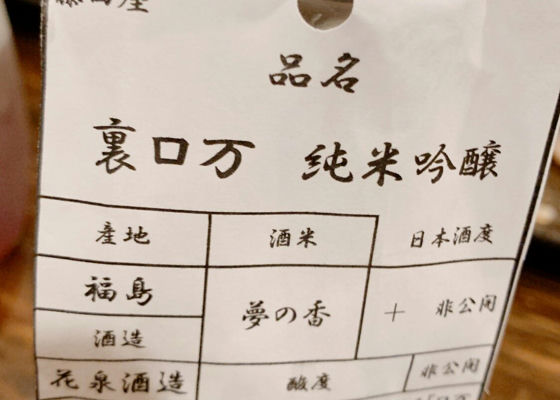 品名
裏ロ万 純米吟醸
産地 酒米 日本酒度
福島 夢の香 + 非公開
酒造
花泉酒造 酸度 非公開